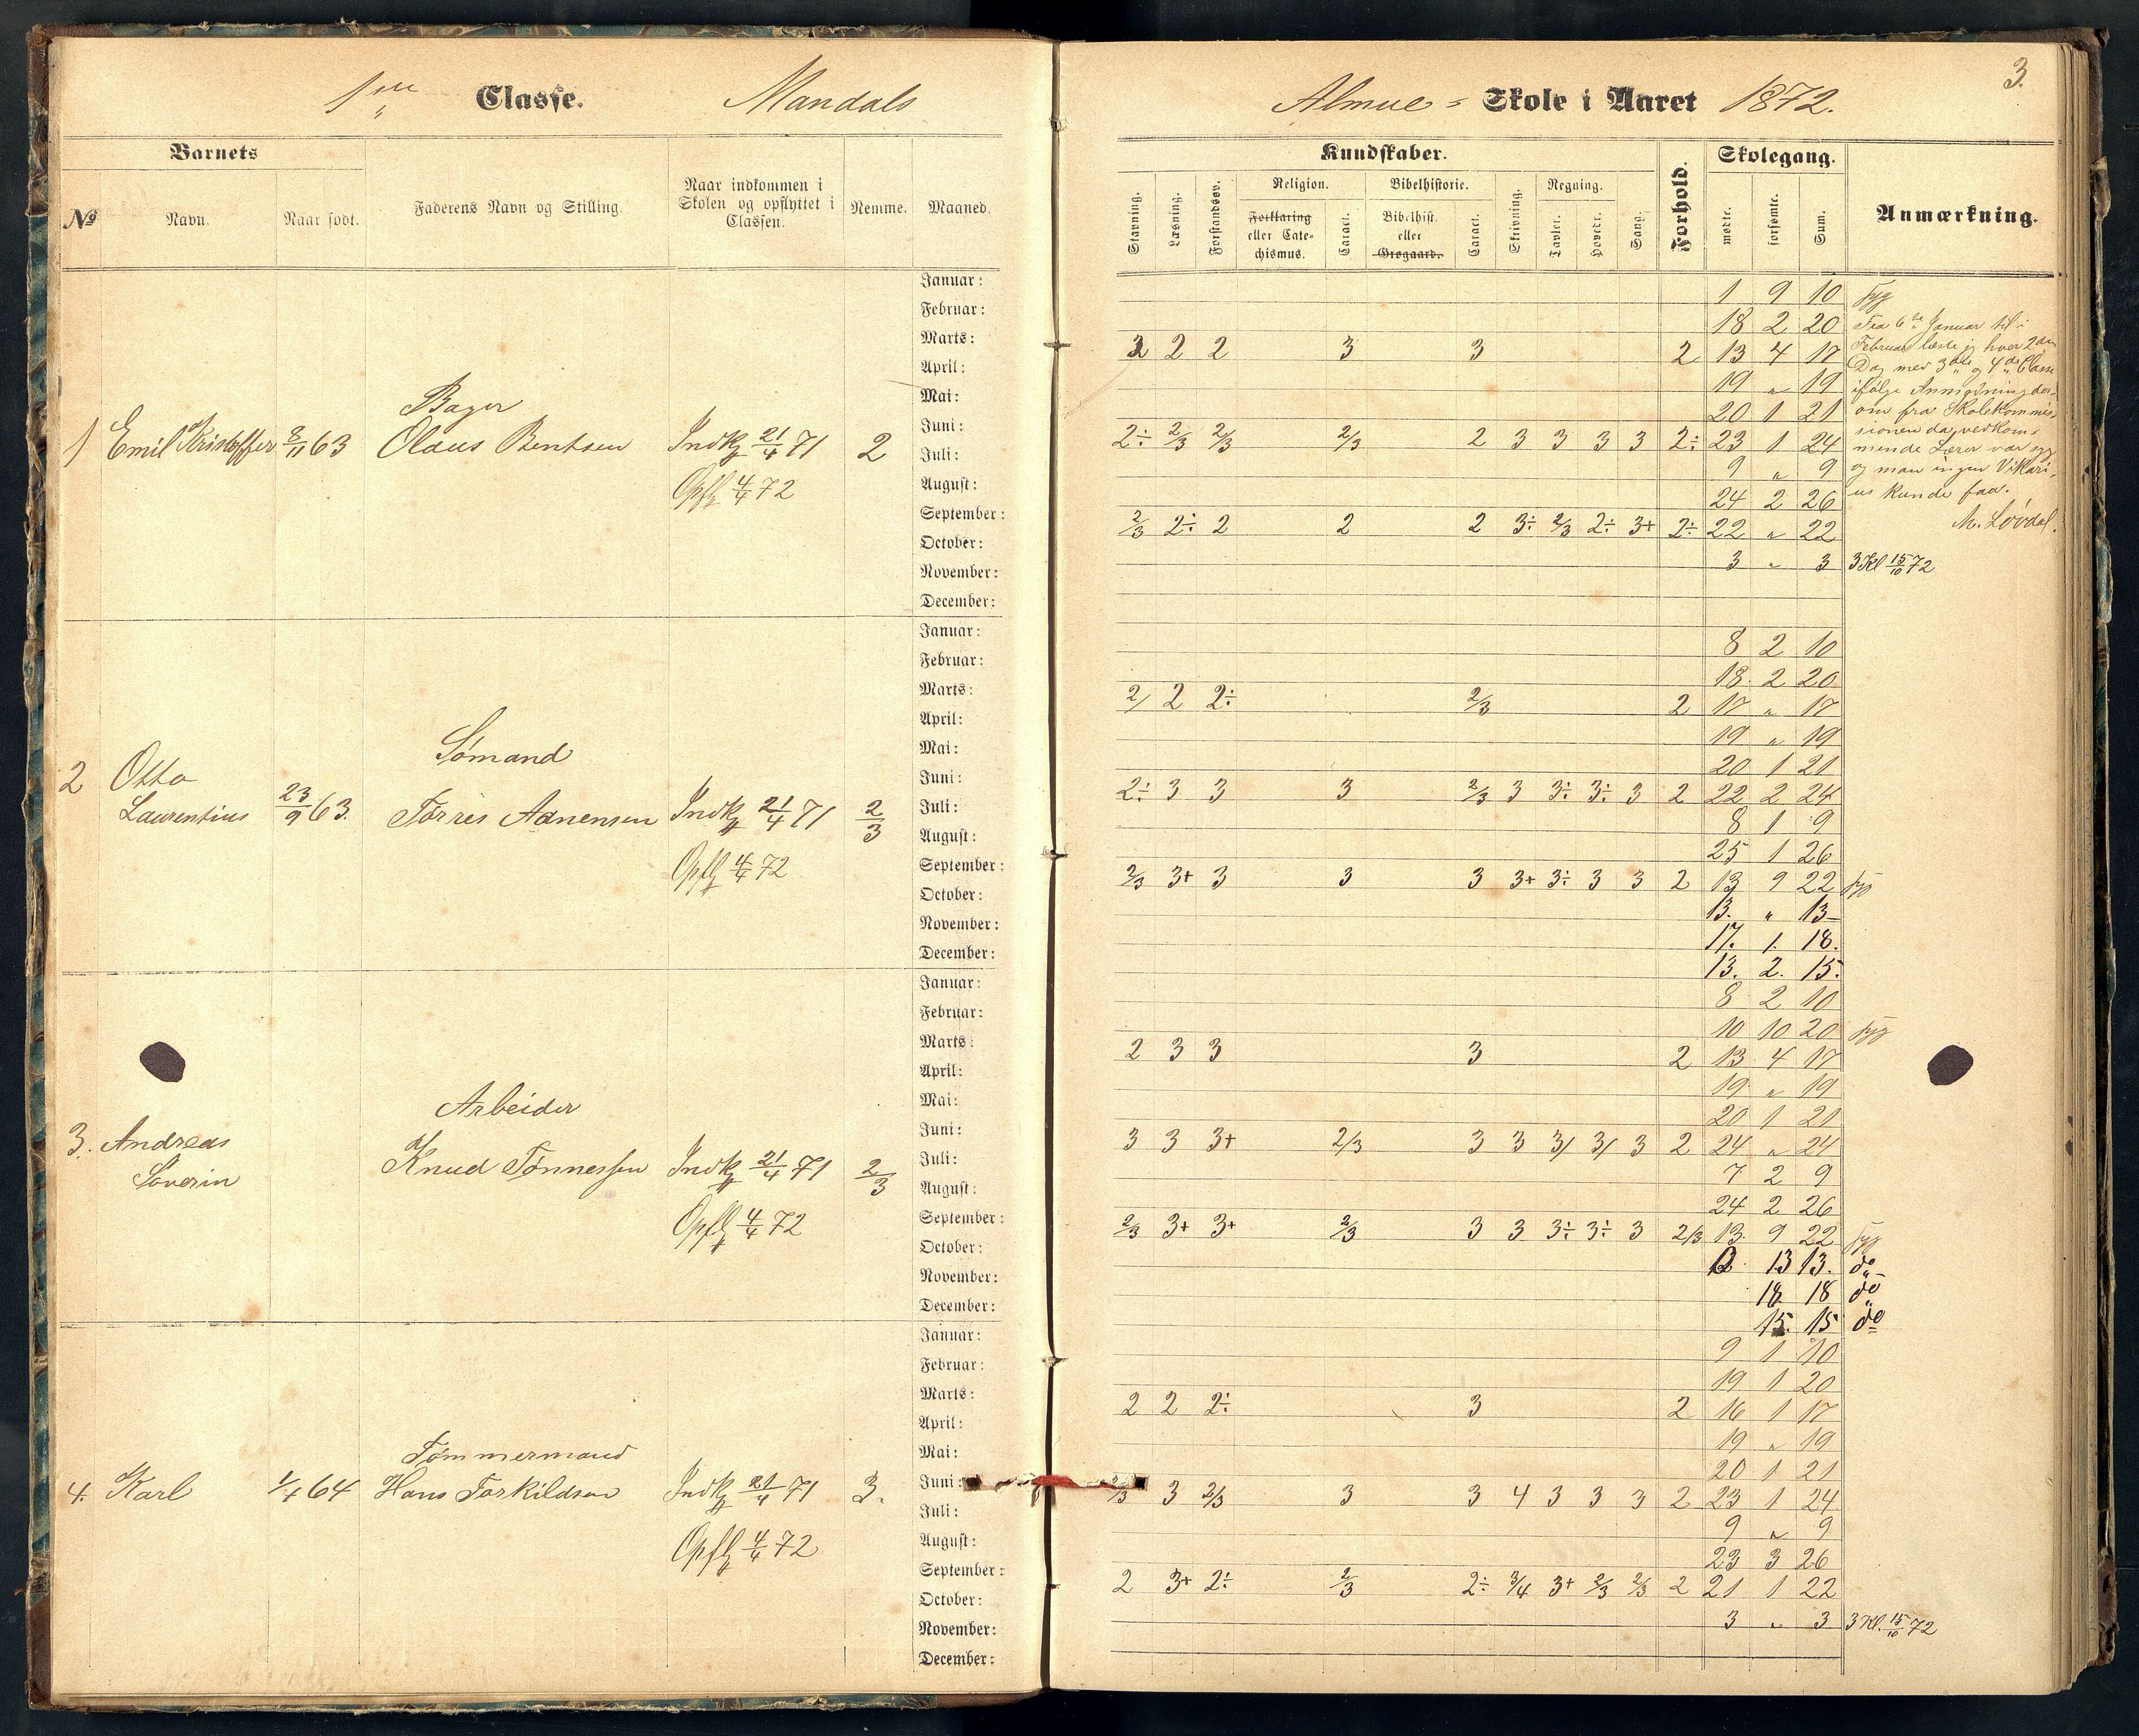 Classe. Mandals
Almue = Skole i Aaret 1872.
3.
Barnets
№
Navn.
Naar født.
Faderens Navn og Stilling.
Naar indkommen i
Skolen og opflyttet i
Classen.
Nemme.
Maaned.
Kundskaber.
Stavning.
Læsning.
Forstandsøv.
Religion.
Forklaring
eller Cate-
chismus.
Caract.
Bibelhistorie.
Bibelhist.
eller
Grøgaard.
Caract.
Skrivning.
Regning.
Tavler.
Hovedr.
Sang.
Forhold.
Skolegang.
mødte.
forsømte.
Sum.
Anmærkning.
1 Emil Kristoffer 8/11 63
Bager
Olaus Bentsen
Indk 21/4 71
Opfl 4/4 72
2
Januar: 1 9 10 syg
Februar: 18 2 20
Marts: 3 2 2 3 3 2 13 4 17
April: 19 " 19
Mai: 20 1 21
Juni: 2÷ 2/3 2/3 2/3 2 3 3 3 3 2÷ 23 1 24
Juli: 9 " 9
August: 24 2 26
September: 2/3 2÷ 2 2 2 3÷ 2/3 2÷ 3+ 2÷ 22 " 22
October: 3 " 3 3 Kl 15/10 72
November:
December:
Fra 6te Januar til
Februar læste jeg hver 2den
Dag med 3die og 4de Classe
ifølge Anmodning der-
om fra Skolekommis-
sionen da vedkom-
mende Lærer var syg
og man ingen Vikari-
us kunde faa.
M. Løvdal.
2 Otto
Laurentius
23/9 63.
Sømand
Tørres Adnensen
Indk 21/4 71
Opfl 4/4 72
2/3
Januar: 8 2 10
Februar: 18 2 20
Marts: 2/ 2 2÷ 2/3 2 17 " 17
April: 19 " 19
Mai: 20 1 21
Juni: 2÷ 3 3 3 2/3 3 3÷ 3÷ 3 2 22 2 24
Juli: 8 1 9
August: 25 1 26
September: 2/3 3+ 3 3 3 3+ 3÷ 3 3 2 13 9 22 syg
October: 13. " 13
November: 17. 1. 18.
December: 13. 2. 15.
3. Andreas
Severin
Arbeider
Knud Tønnessen
Indk 21/4 71
Opfl 4/4 72
2/3
Januar: 8 2 10
Februar: 10 10 20 syg
Marts: 2 3 3 3 2 13 4 17
April: 19 " 19
Mai: 20 1 21
Juni: 3 3 3+ 2/3 3 3 3/ 3/ 3 2 24 " 24
Juli: 7 2 9
August: 24 2 26
September: 2/3 3+ 3+ 2/3 3 3 3÷ 3÷ 3 2/3 13 9 22 syg
October: 13 13. do
November: 18 18 do
December: 15. 15 do
4. Karl
64
Tømmermand
Hans Torkildsen
Indk 21/4 71
Opfl 4/4 72
3.
Januar: 9 1 10
Februar: 19 1 20
Marts: 2 2 2÷ 3 2 16 1 17
April: 19 " 19
Mai: 20 1 21
Juni: 2/3 3 2/3 3 3 4 3 3 3 2 23 1 24
Juli: 9 " 9
August: 23 3 26
September: 2 3+ 2÷ 2/3 2÷ 3/4 3+ 2/3 2/3 2 21 1 22
October: 3 " 3 3 Kl. 15/10 72
November:
December: